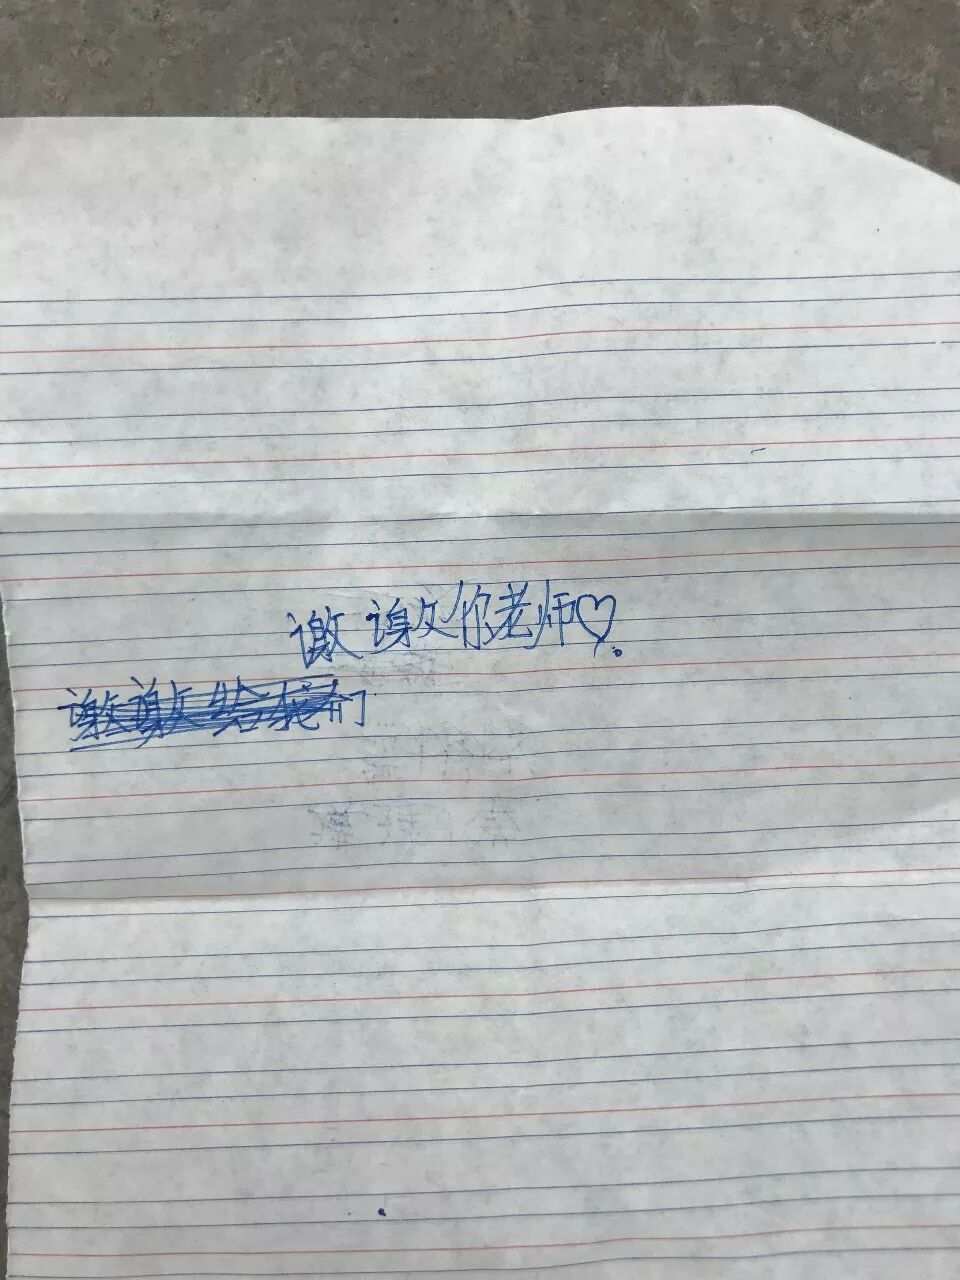 谢谢你老师♡.
谢谢给我们